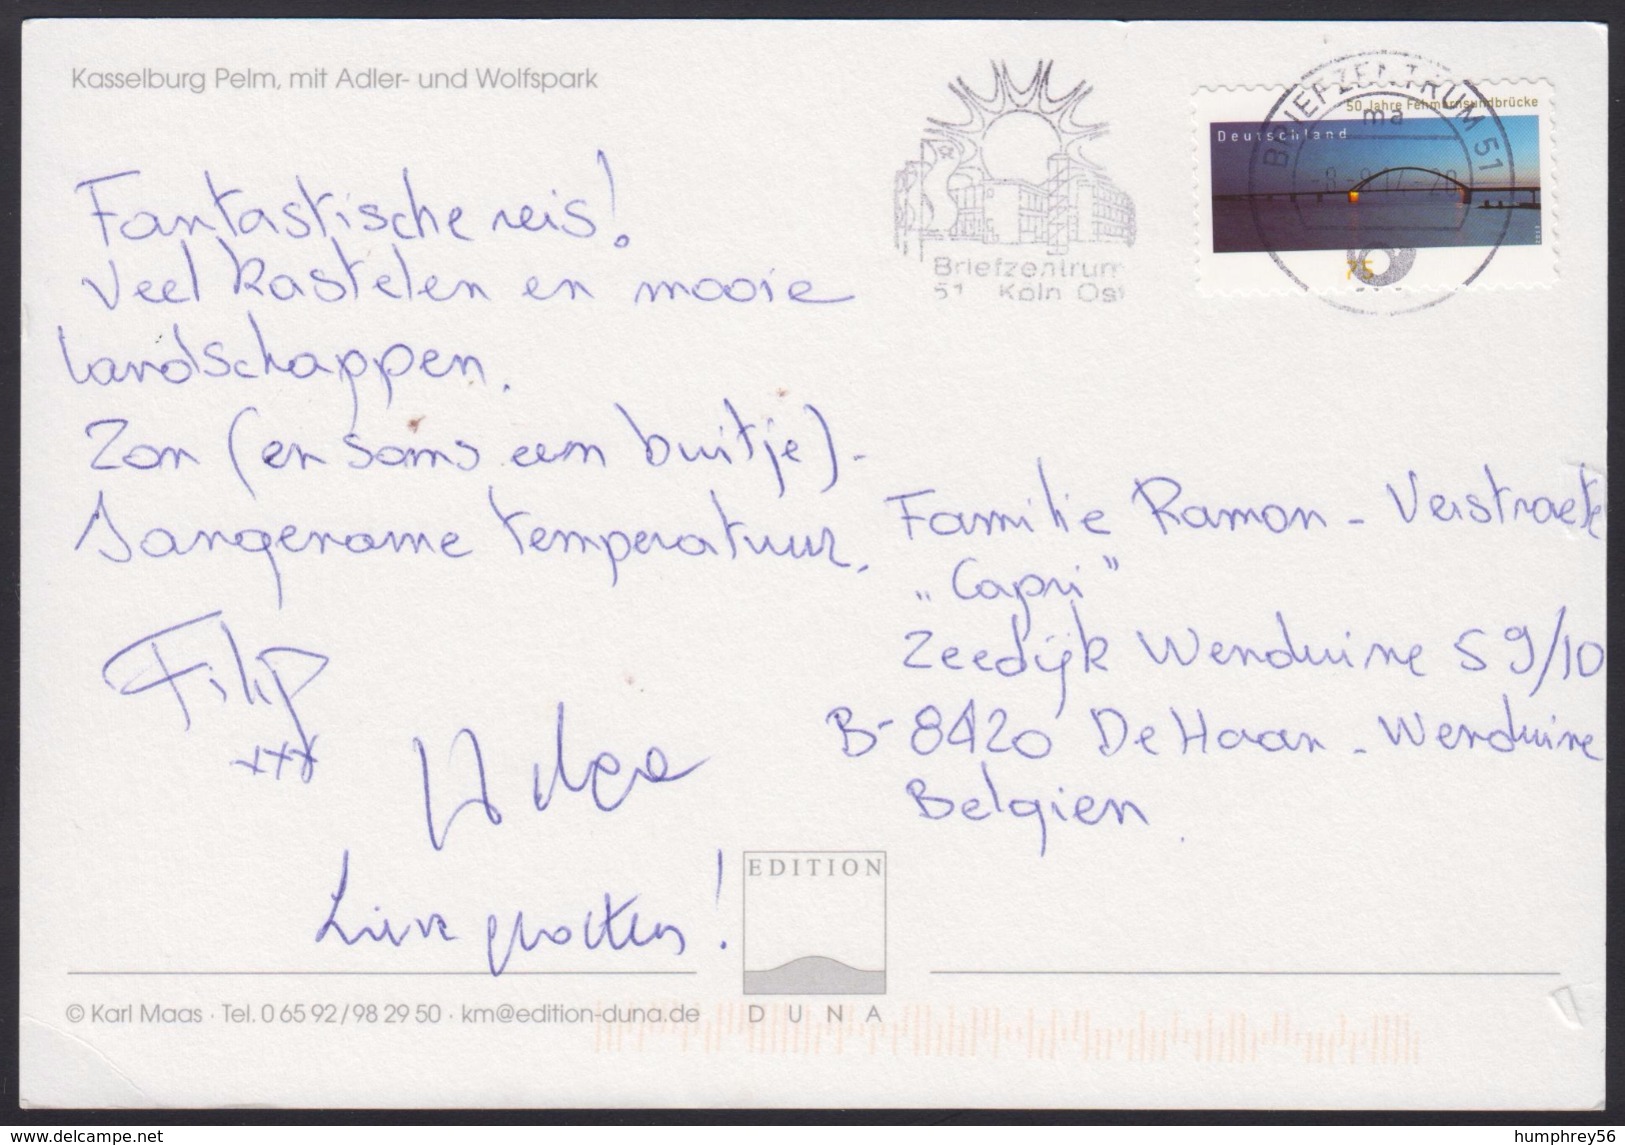 Kasselburg Pelm, mit Adler- und Wolfspark
Fantastische reis!
Veel kastelen en mooie
landschappen.
Zon (en soms een buitje).
Aangename temperatuur.
Filip
xxx
Lieve groeten!
Briefzentrum
51 Köln Ost
BRIEFZENTRUM 51
ma
50 Jahre Fehmarnsundbrücke
Deutschland
75
Familie Ramon - Verstraete
„Capri"
Zeedijk Wenduine 59/10
B-8420 De Haan - Wenduine
Belgien
EDITION
DUNA
© Karl Maas · Tel. 0 65 92/98 29 50 · km@edition-duna.de
www.delcampe.net
humphrey56